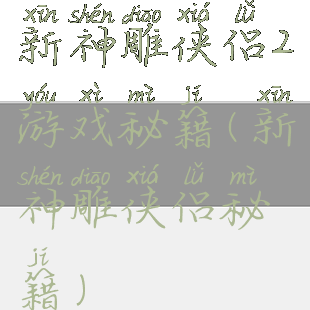 xīn shén diāo xiá lǚ
新神雕侠侣2
yóu xì mì jí xīn
游戏秘籍(新
shén diāo xiá lǚ mì
神雕侠侣秘
jí
籍)